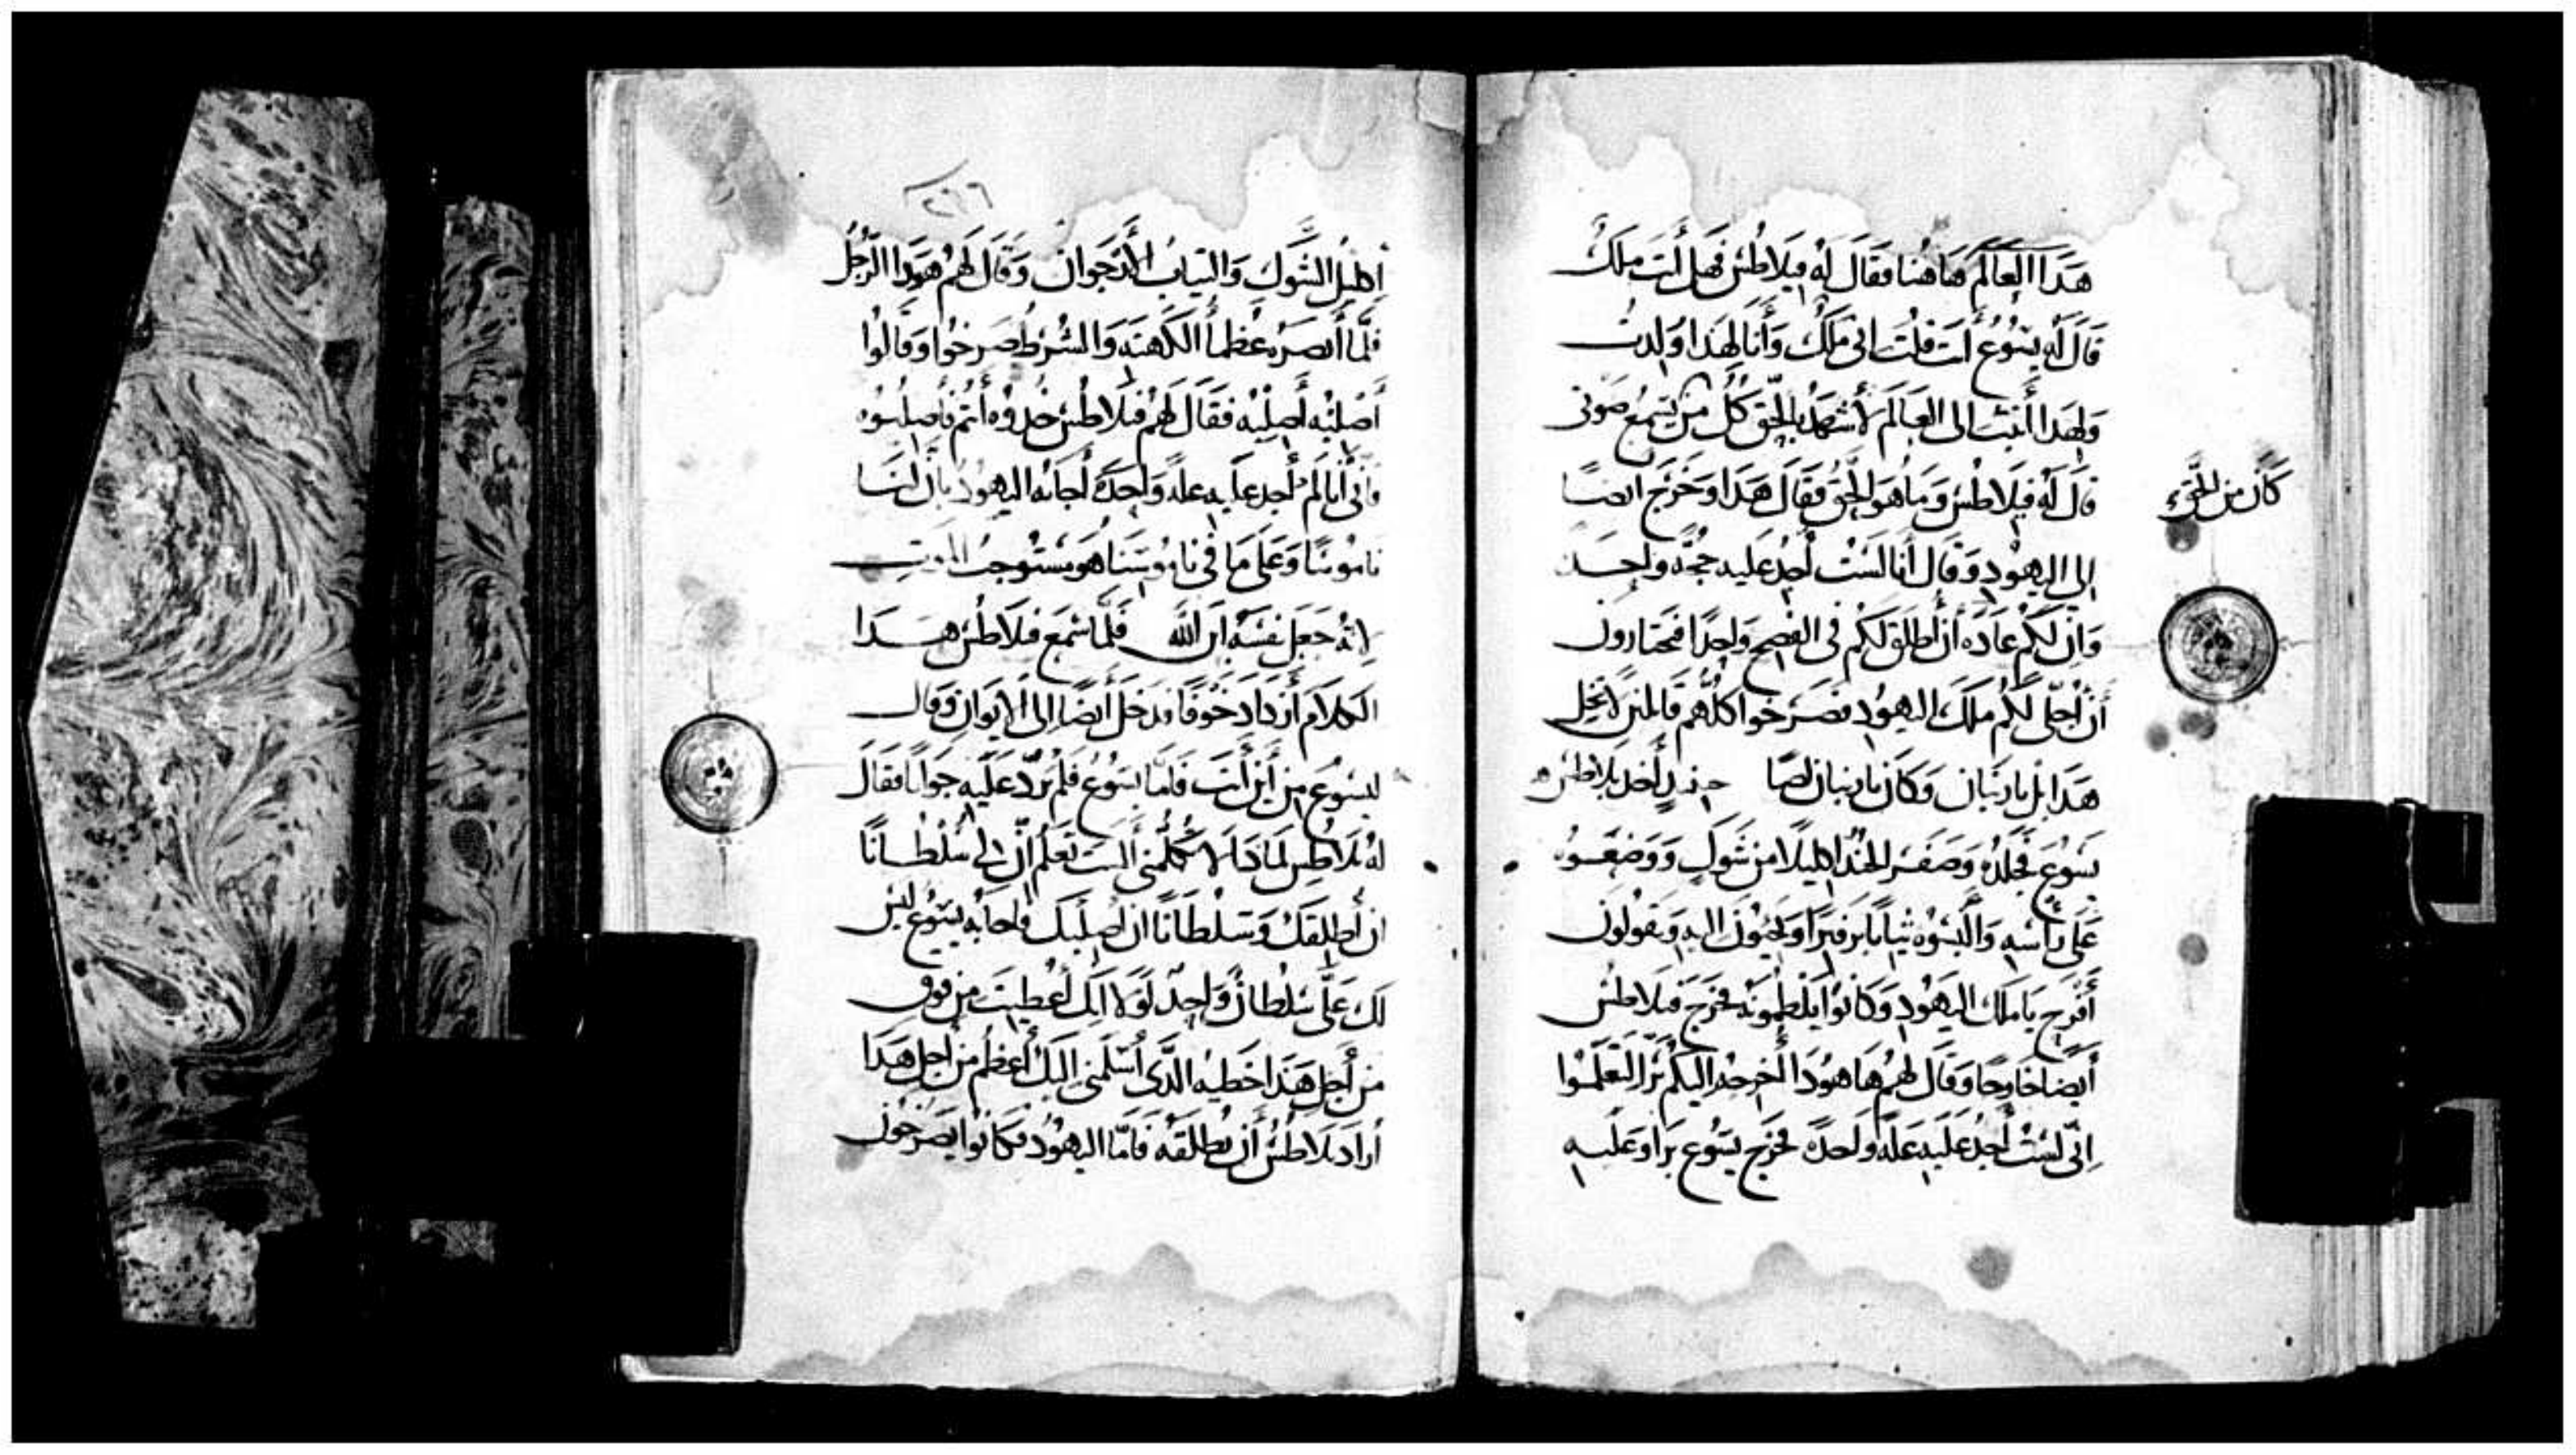 هَذَا العَالَم هَاهُنا فقَالَ لَهُ فِيلَاطُس فَهَل أنتَ مَلكٌ
قَالَ لَهُ يَسُوعُ أنتَ قلتَ اني مَلكٌ وَأنَا لِهَذا وُلِدتُ
وَلِهَذا أتيتُ الى العَالَم لأشهَدَ بالحَقِ كُلُّ مَن يَسمَعُ صَوتي
كَانَ من الحَق
قالَ لَهُ فيلَاطُس وَمَا هوَ الحَقُ فقَالَ هَذَا وَخَرَج ايضًا
إلى اليهُودِ وَقَال أنَا لَستُ أجِدُ عَليه حُجَّه واحِدَه
وَانَّ لكُم عَادَه أن أُطلِقَ لَكُم في الفِصحِ وَاحِدًا فتختارونَ
أن أُخلي لَكُم مَلكَ اليهُودِ فصَرَخوا كلُّهُم قَائلين لا تخلي
هَذَا بَل بارنبَان وَكَانَ بارنبان لصًا حينيدٍ أخد بلاطس
يَسُوعَ فجَلدَهُ وَضَفَر الجُندُ اكليلًا مِن شَوكٍ وَوَضَعُوهُ
عَلى رَأسِهِ وَألبَسُوهُ ثيَابًا برفيرًا وَيجيونَ اليهِ وَيَقولُونَ
أفرَح يَا مَلكَ اليَهُودِ وَكَانوا يَلطِمُونَهُ فخرَج فيلَاطُس
أيضًا خَارِجًا وَقَال لهُم هَا هُودَا أخرجه اليكُم بَرًّا لتَعلَمُوا
اِنّي لَستُ أجِدُ عَلَيهِ عِلَّةً وَاحدَةً فخرَج يَسُوع بَرا وَعَليهِ
٢٩٦
إكليلُ الشَّوك وَالتيابُ الأُرجوان وَقَالَ لَهُم هوَدا الرَّجُلُ
فلَمَّا أبصَرَهُ عُظمَا الكَهَنَه وَالشُرَط صَرخُوا وَقَالُوا
أصلبْهِ أصلِبْه فقَالَ لهُم فيلاطُس خُدوُه أنتُم فأصلبُوه
فأنّي أنا لَم أجد عَليه علةً وَاحِدَةً أجَابَهُ اليهُودُ بأنَّ لنَا
نامُوسًا وَعَلى مَا في نامُوسِنَا هوَ مُستَوجبُ الموتِ
لانَّهُ جَعَل نفسَهُ ابن اللَّه فَلَمَّا سَمِعَ فيلاطُس هَذَا
الكلَامَ أزدَادَ خَوفًا ودَخَل أيضًا إلى الايوَانِ وَقال
ليَسُوعَ مِن أينَ أنتَ فَامَّا يَسُوعُ فَلَم يَردَّ عَلَيهِ جَوابًا فقَال
لهُ بلَاطُس لمَادَا لا تُكَلّمني ألستَ تَعلَمُ أنَّ لي سُلطَانًا
ان أُطلِقَكَ وَسُلطَانًا ان أصلِبَك فاجابَهُ يَسُوع ليسَ
لَكَ عَلَيَّ سُلطانٌ وَاحِدٌ لَولَا انَّكَ أُعطيتَ مِن فوق
مِن أجل هَذَا خَطيه الَّذي أسْلَمَني اليكَ أعظَمُ مِن أجل هَذَا
أرادَ بلاطُسُ أن يُطلقَهُ فَامَّا اليهُودُ فكَانوا يَصرَخون